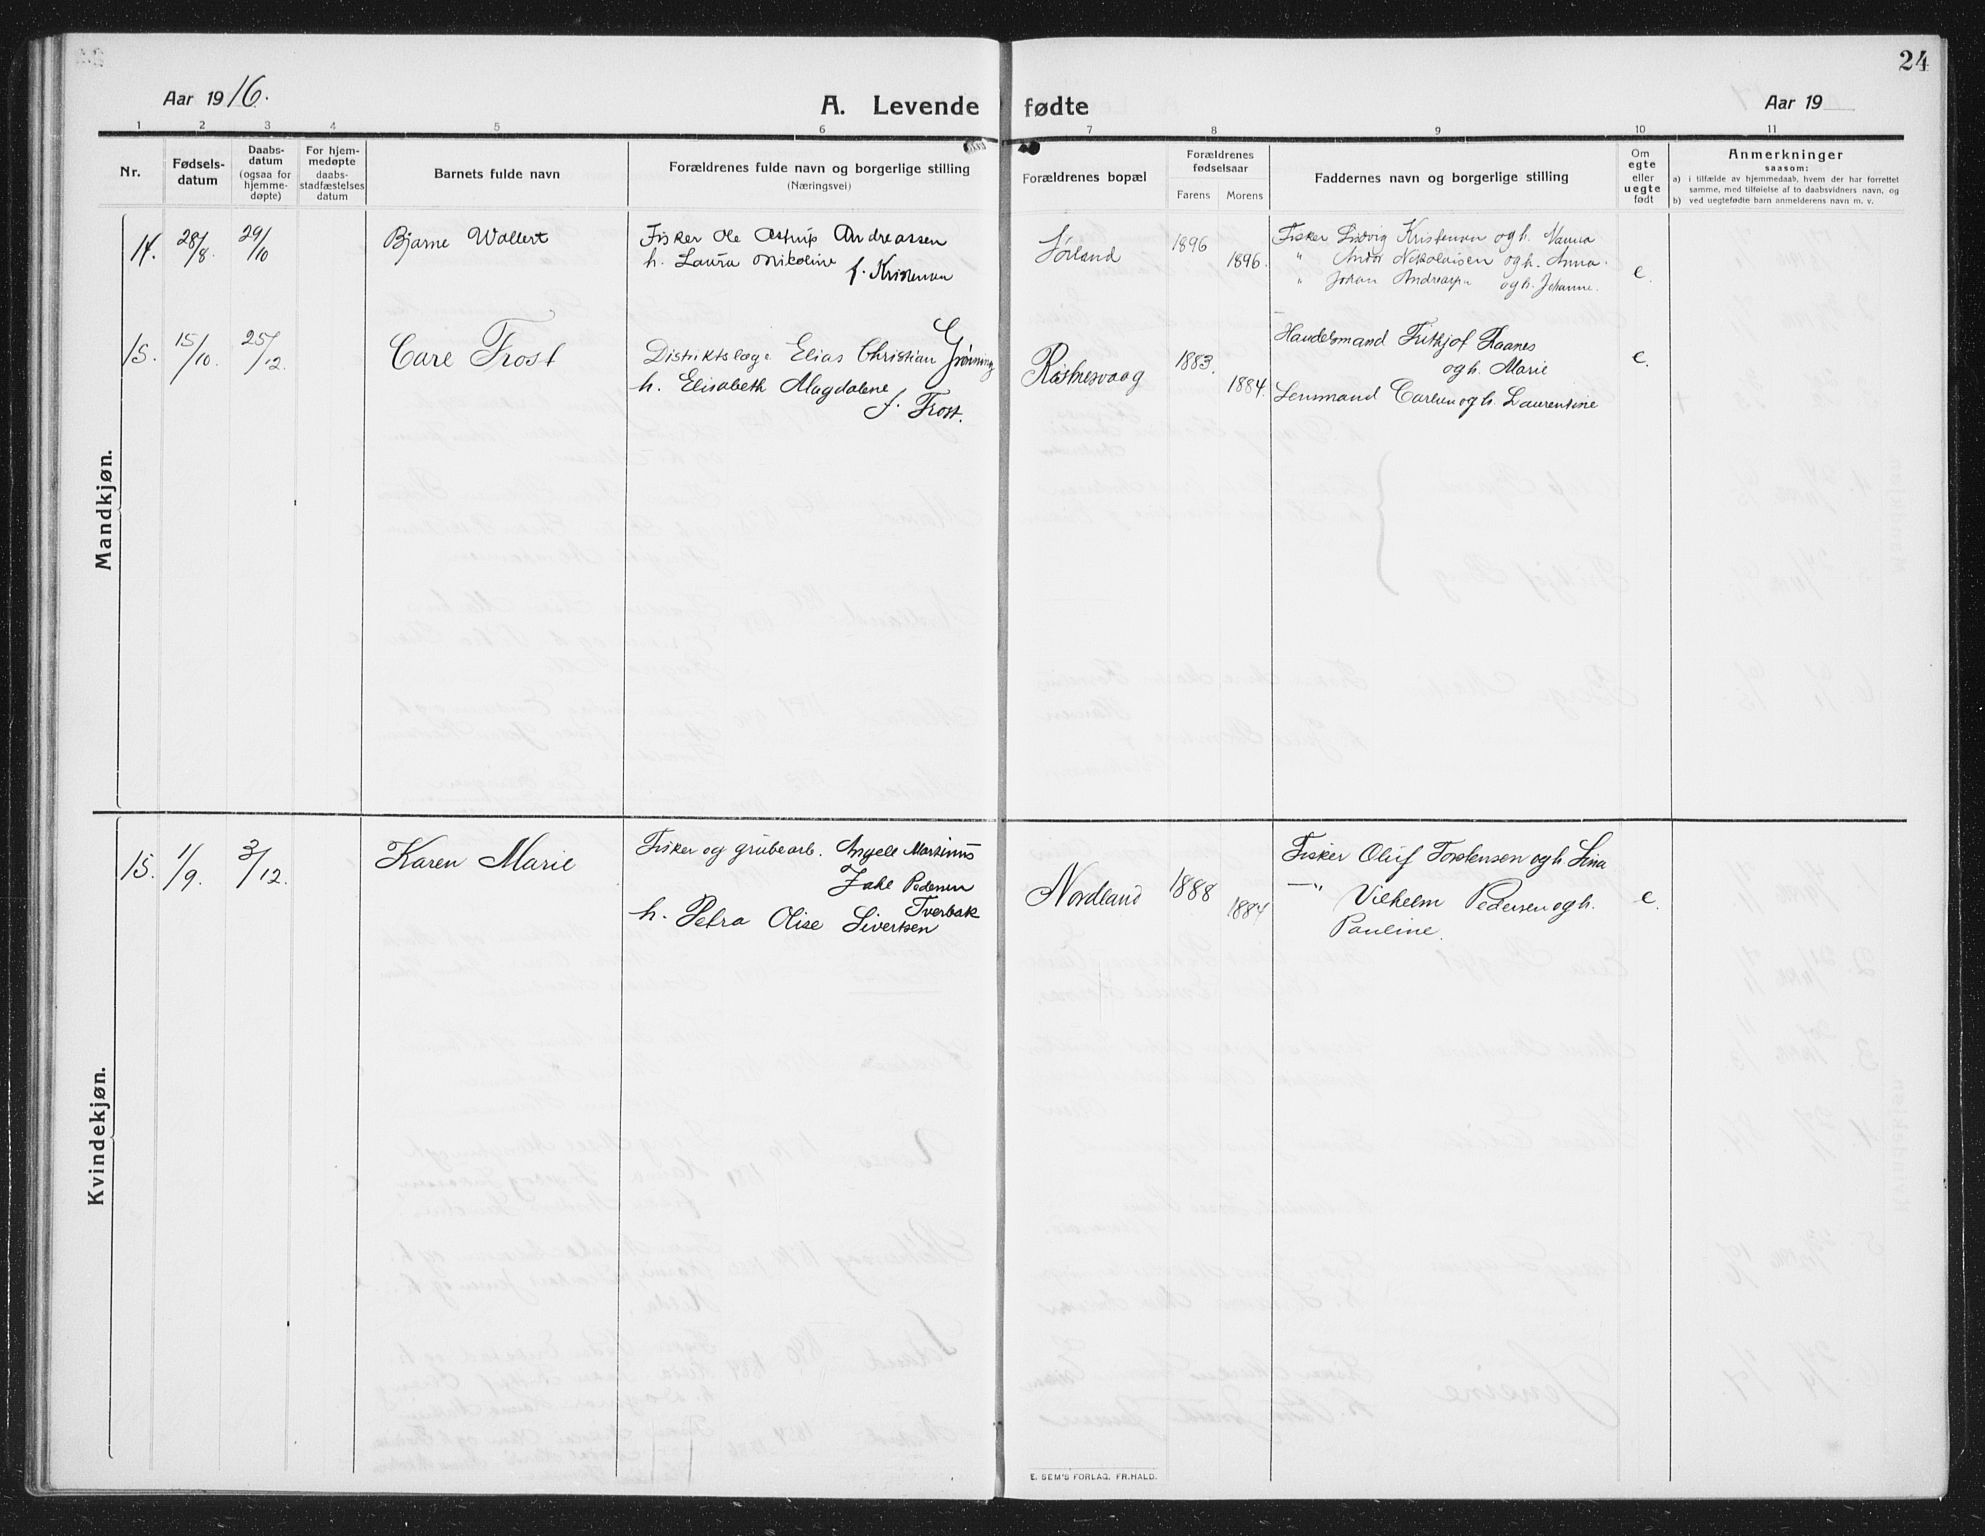 24
Aar 1916.
A. Levende fødte
Aar 19
1 2 3 4 5 6 7 8 9 10 11
Nr.
Fødsels-
datum
Daabs-
datum
(ogsaa for
hjemme-
døpte)
For hjem-
medøpte
daabs-
stadfæstelses
datum
Barnets fulde navn
Forældrenes fulde navn og borgerlige stilling
(Næringsvei)
Forældrenes bopæl
Forældrenes
fødselsaar
Farens Morens
Faddernes navn og borgerlige stilling
Om
egte
eller
uegte
født
Anmerkninger
saasom:
a) i tilfælde av hjemmedaab, hvem der har forrettet
samme, med tilføielse av to daabsvidners navn, og
b) ved uegtefødte barn anmelderens navn m. v.
Mandkjøn.
14. 28/8. 29/10 Bjarne Wallert
Fisker Ole Astrup Andreassen
h. Laura Nikoline f. Kristensen
Sørland 1896 1896.
Fisker Ludvig Kristensen og h. Nanna
" Andor Nikolaisen og h. Anna.
" Johan Andreassen og h. Johanne.
e.
15. 15/10. 25/12. Care Frost
Distriktslæge Elias Christian Grønning
h. Elisabeth Magdalene
f. Frost.
Røstnesvaag 1883. 1884.
Handelsmand Frithjof Raanes
og h. Marie
Lensmand Carlsen og h. Laurentine
e.
Kvindekjøn.
15. 1/9. 3/12. Karen Marie
Fisker og grubearb. Angell Martinus
Jakl Pedersen
Tverbak
h. Petra Olise Sivertsen
Nordland 1888 1884
Fisker Oluf Torstensen og h. Lina
—"— Vilhelm Pedersen og h.
Pauline.
e.
E. SEM'S FORLAG, FR.HALD.